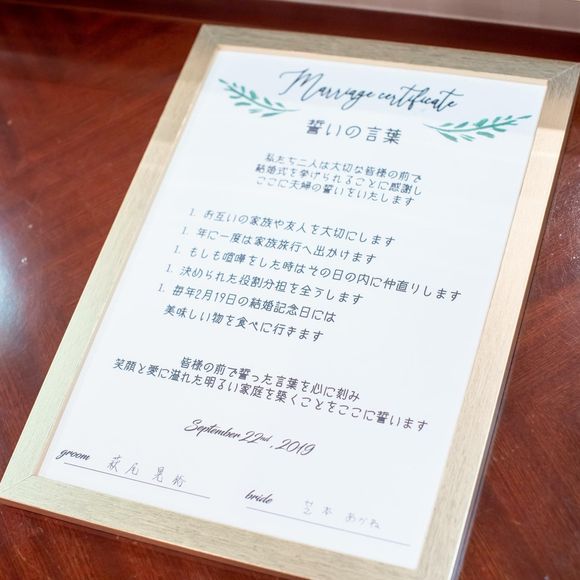 Marriage certificate
誓いの言葉
私たち二人は大切な皆様の前で
結婚式を挙げられることに感謝し
ここに夫婦の誓いをいたします
1. お互いの家族や友人を大切にします
1. 年に一度は家族旅行へ出かけます
1. もしも喧嘩をした時はその日の内に仲直りします
1. 決められた役割分担を全うします
1. 毎年2月19日の結婚記念日には
美味しい物を食べに行きます
皆様の前で誓った言葉を心に刻み
笑顔と愛に溢れた明るい家庭を築くことをここに誓います
September 22nd, 2019
groom 萩尾 晃
bride 本 あかね